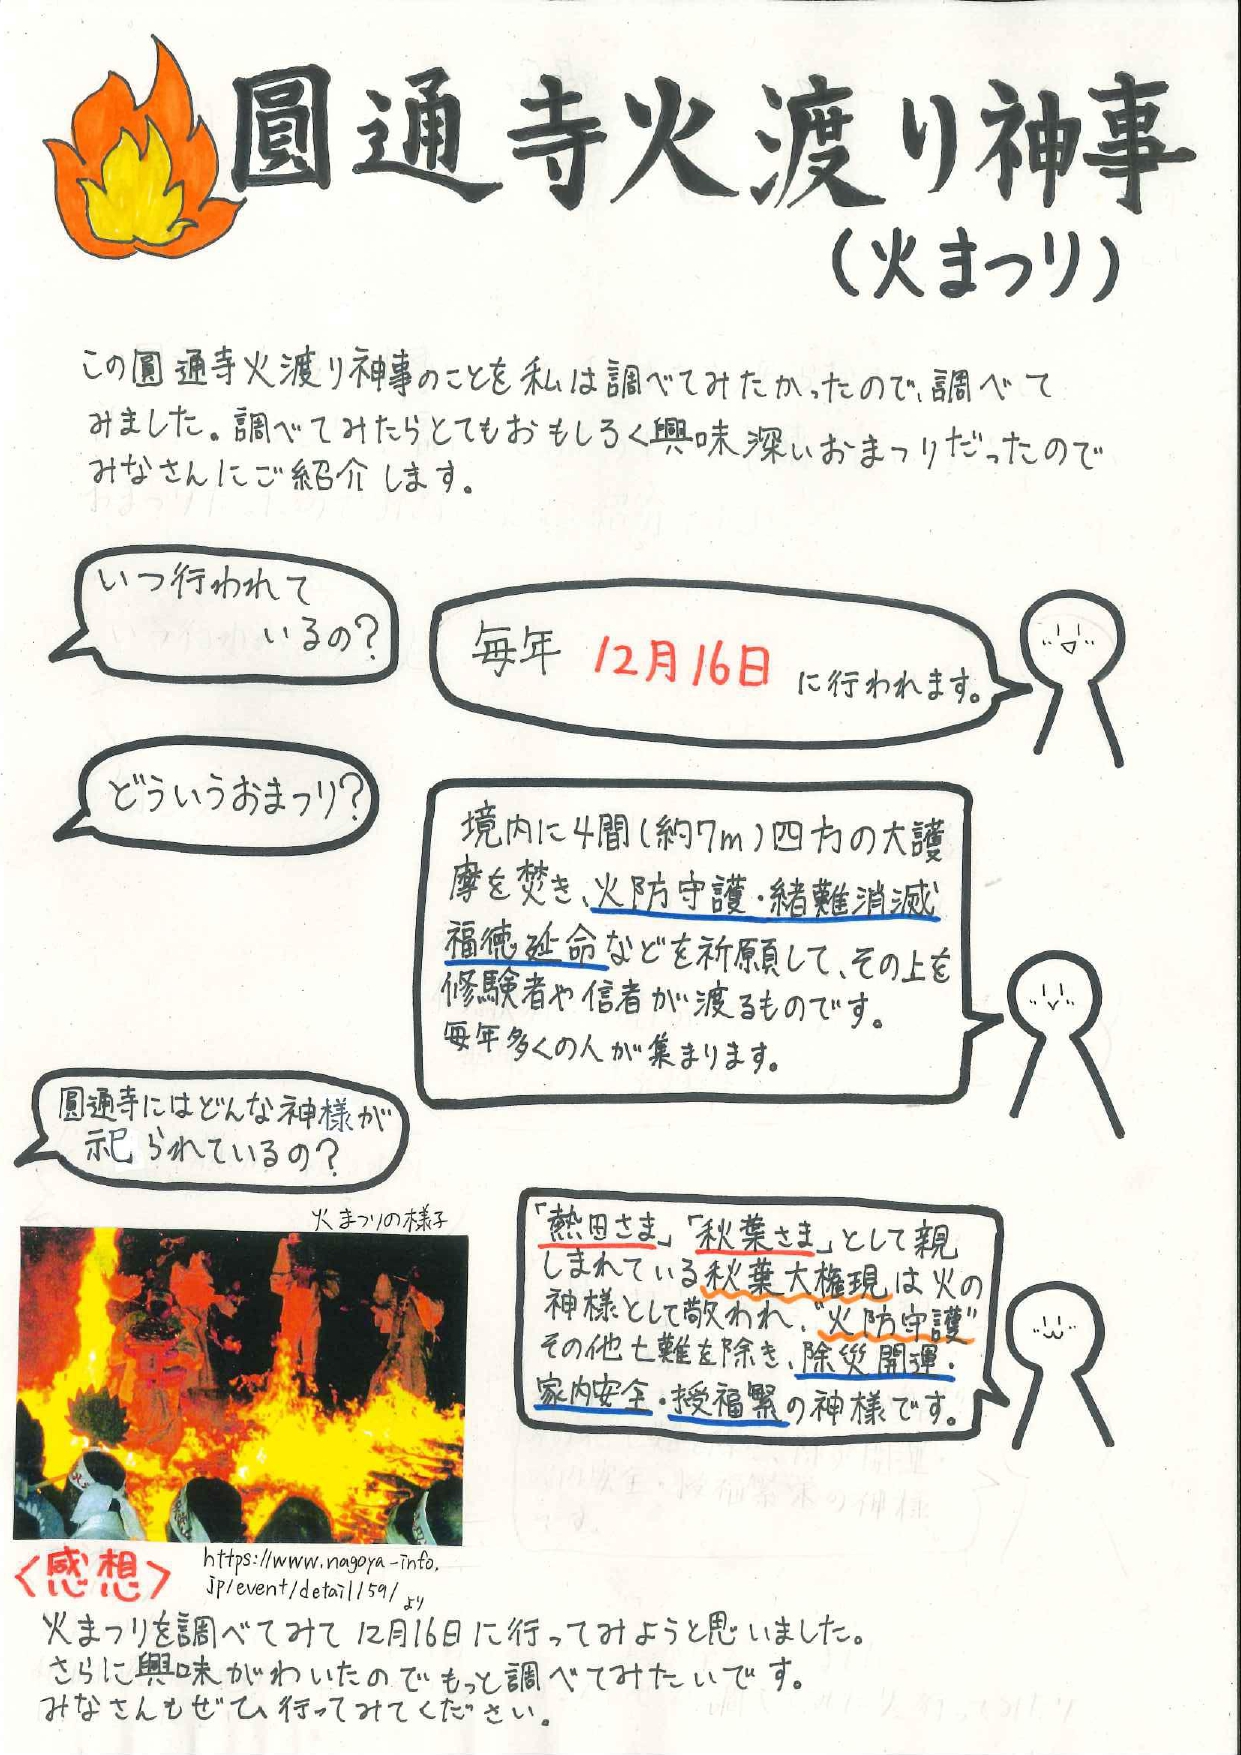 圓通寺火渡り神事
(火まつり)
この圓通寺火渡り神事のことを私は調べてみたかったので、調べて
みました。調べてみたらとてもおもしろく興味深いおまつりだったので
みなさんにご紹介します。
いつ行われて
いるの?
毎年 12月16日 に行われます。
どういうおまつり?
境内に4間(約7m)四方の大護
摩を焚き、火防守護・緒難消滅
福徳延命などを祈願して、その上を
修験者や信者が渡るものです。
毎年多くの人が集まります。
圓通寺にはどんな神様が
祀られているの?
「熱田さま」「秋葉さま」として親
しまれている秋葉大権現は火の
神様として敬われ、"火防守護"
その他七難を除き、除災開運・
家内安全・授福繁の神様です。
火まつりの様子
https://www.nagoya-info.
jp/event/detail/59/より
<感想>
火まつりを調べてみて12月16日に行ってみようと思いました。
さらに興味がわいたのでもっと調べてみたいです。
みなさんもぜひ、行ってみてください。